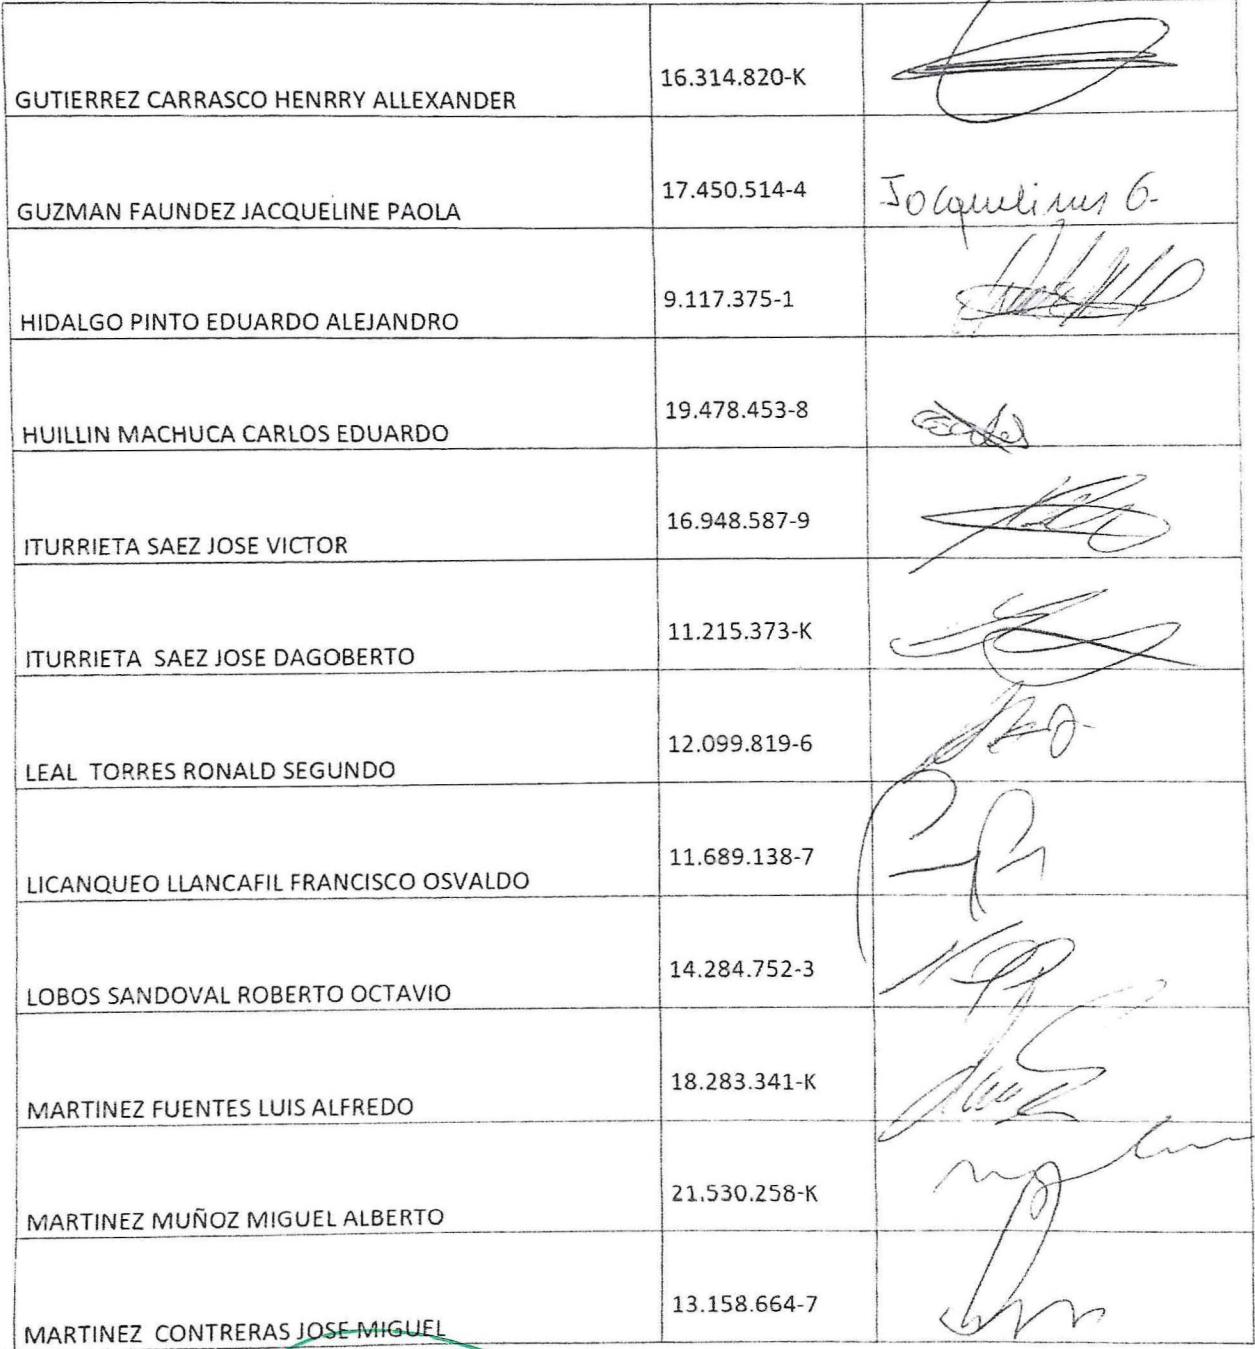 GUTIERREZ CARRASCO HENRRY ALLEXANDER 16.314.820-K
GUZMAN FAUNDEZ JACQUELINE PAOLA 17.450.514-4 Jacqueline G.
HIDALGO PINTO EDUARDO ALEJANDRO 9.117.375-1
HUILLIN MACHUCA CARLOS EDUARDO 19.478.453-8
ITURRIETA SAEZ JOSE VICTOR 16.948.587-9
ITURRIETA SAEZ JOSE DAGOBERTO 11.215.373-K
LEAL TORRES RONALD SEGUNDO 12.099.819-6
LICANQUEO LLANCAFIL FRANCISCO OSVALDO 11.689.138-7
LOBOS SANDOVAL ROBERTO OCTAVIO 14.284.752-3
MARTINEZ FUENTES LUIS ALFREDO 18.283.341-K
MARTINEZ MUÑOZ MIGUEL ALBERTO 21.530.258-K
MARTINEZ CONTRERAS JOSE MIGUEL 13.158.664-7